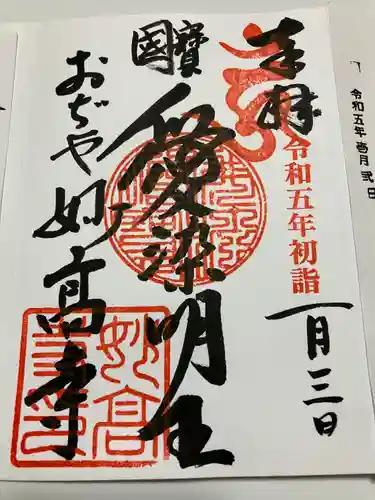 奉拝
令和五年初詣
一月三日
國寶
愛染明王
おぢや妙高寺
妙高
令和五年壱月弐日